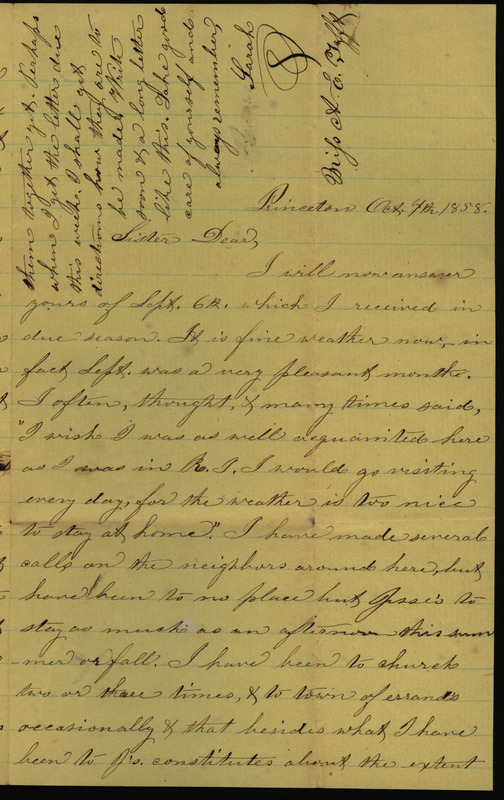 them together yet. Perhaps
when I get the letter due
this week, I shall get
directions how they are to
be made. Write
soon & a long letter
like this. Take good
care of yourself and
always remember,
Sarah
Miss A. E. Tefft
Princeton Oct. 7th, 1858.
Sister Dear,
I will now answer
yours of Sept. 6th. which I received in
due season. It is fine weather now, in
fact, Sept. was a very pleasant month.
I often, thought, & many times said,
"I wish I was as well acquainted here
as I was in R. I. I would go visiting
every day, for the weather is too nice
to stay at home." I have made several
calls on the neighbors around here, but
have been to no place but Jesse's to
stay as much as an afternoon this sum
-mer or fall. I have been to church
two or three times, & to town of errands
occasionally & that besides what I have
been to J's. constitutes about the extent